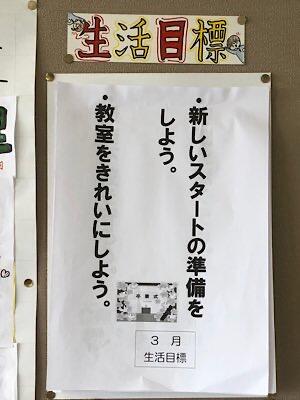 生活目標
・新しいスタートの準備を
しよう。
・教室をきれいにしよう。
卒業式
3 月
生活目標